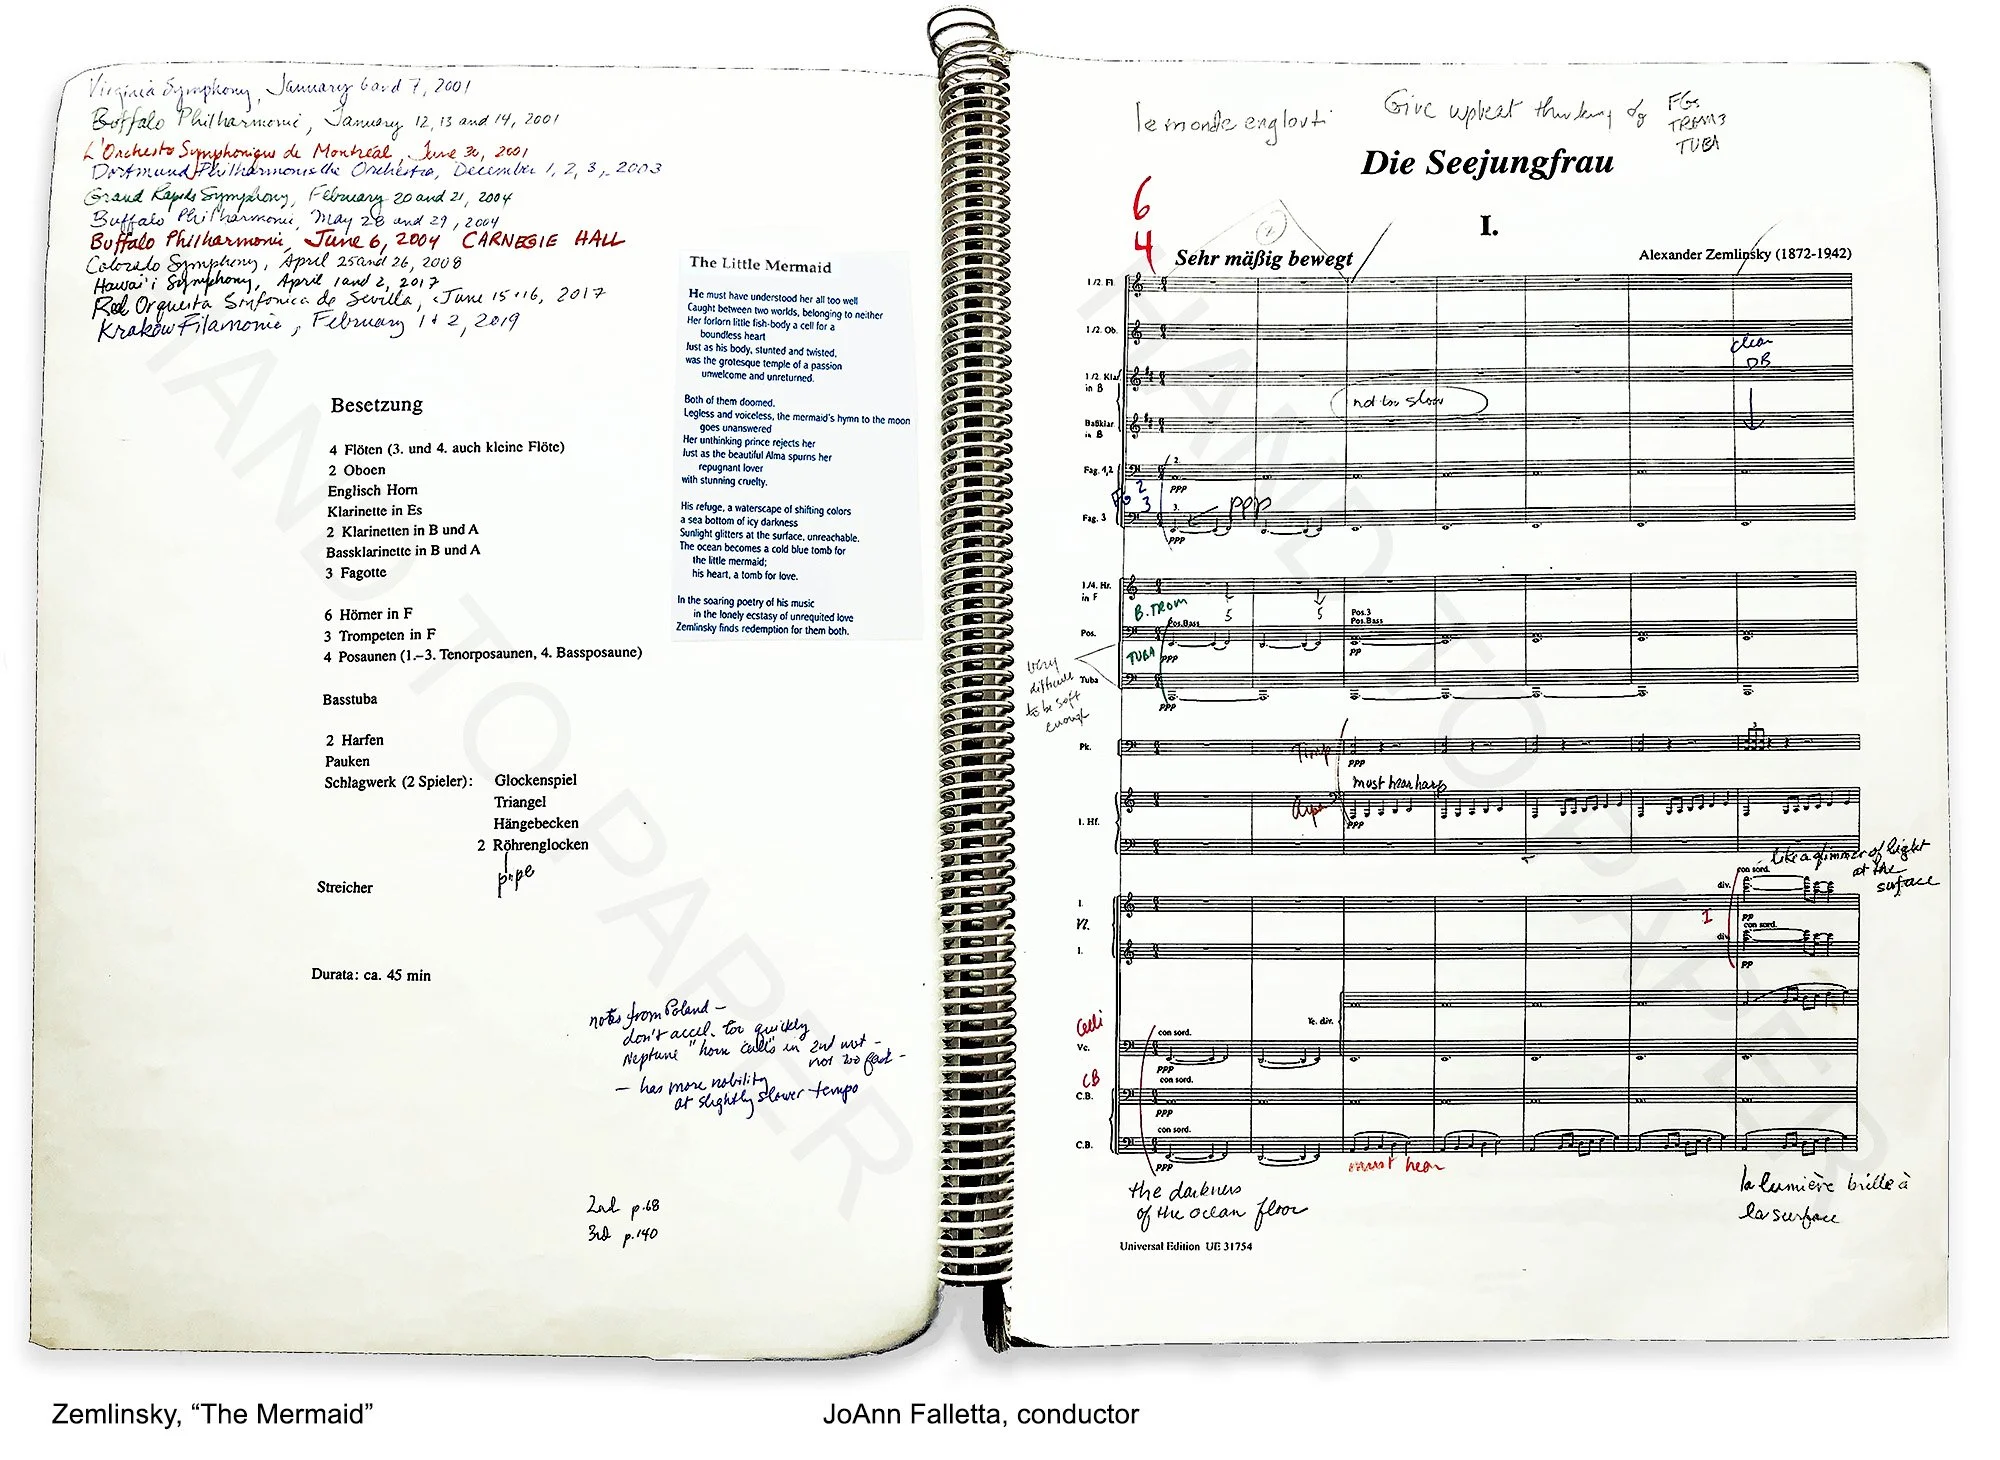 Virginia Symphony, January 6 and 7, 2001
Buffalo Philharmonic, January 12, 13 and 14, 2001
L'Orchestre Symphonique de Montréal, June 30, 2001
Dortmund Philharmonische Orchestra, December 1, 2, 3, 2003
Grand Rapids Symphony, February 20 and 21, 2004
Buffalo Philharmonic, May 28 and 29, 2004
Buffalo Philharmonic, June 6, 2004 CARNEGIE HALL
Colorado Symphony, April 25 and 26, 2008
Hawai'i Symphony, April 1 and 2, 2017
Real Orquesta Sinfonica de Sevilla, June 15+16, 2017
Krakow Filamonie, February 1 + 2, 2019
The Little Mermaid
He must have understood her all too well
Caught between two worlds, belonging to neither
Her forlorn little fish-body a cell for a
boundless heart
Just as his body, stunted and twisted,
was the grotesque temple of a passion
unwelcome and unreturned.
Both of them doomed.
Legless and voiceless, the mermaid's hymn to the moon
goes unanswered
Her unthinking prince rejects her
Just as the beautiful Alma spurns her
repugnant lover
with stunning cruelty.
His refuge, a waterscape of shifting colors
a sea bottom of icy darkness
Sunlight glitters at the surface, unreachable.
The ocean becomes a cold blue tomb for
the little mermaid;
his heart, a tomb for love.
In the soaring poetry of his music
in the lonely ecstasy of unrequited love
Zemlinsky finds redemption for them both.
Besetzung
4 Flöten (3. und 4. auch kleine Flöte)
2 Oboen
Englisch Horn
Klarinette in Es
2 Klarinetten in B und A
Bassklarinette in B und A
3 Fagotte
6 Hörner in F
3 Trompeten in F
4 Posaunen (1.–3. Tenorposaunen, 4. Bassposaune)
Basstuba
2 Harfen
Pauken
Schlagwerk (2 Spieler): Glockenspiel
Triangel
Hängebecken
2 Röhrenglocken
pipe
Streicher
Durata: ca. 45 min
notes from Poland –
don't accel. too quickly
Neptune "horn calls" in 2nd mvt –
not too fast –
– has more nobility
at slightly slower tempo
2nd p.68
3rd p.140
HAND TO PAPER
le monde englouti
Give upbeat thinking of FG.
TROM3
TUBA
Die Seejungfrau
6
4
I.
2
Sehr mäßig bewegt
Alexander Zemlinsky (1872-1942)
1/2. Fl.
1/2. Ob.
clear
DB
1/2. Klar.
in B
not too slow
Baßklar.
in B
Fag. 1,2
2.
ppp
Fg 2
3
ppp
Fag. 3
3.
ppp
1/4. Hr.
in F
B. TROM
5
5
Pos.3
Pos.Bass
Pos.Bass
Pos.
TUBA
ppp
pp
very
difficult
to be soft
enough
Tuba
ppp
Timp
3
Pk.
ppp
must hear harp
Arpa
I. Hf.
ppp
like a glimmer of light
at the
surface
con sord.
div.
I.
I
Vl.
pp
con sord.
div.
I.
pp
Celli
Vc. div.
con sord.
Vc.
ppp
CB
con sord.
C.B.
ppp
con sord.
C.B.
ppp
must hear
the darkness
of the ocean floor
la lumière brille à
la surface
Universal Edition UE 31754
HAND TO PAPER
Zemlinsky, “The Mermaid”
JoAnn Falletta, conductor